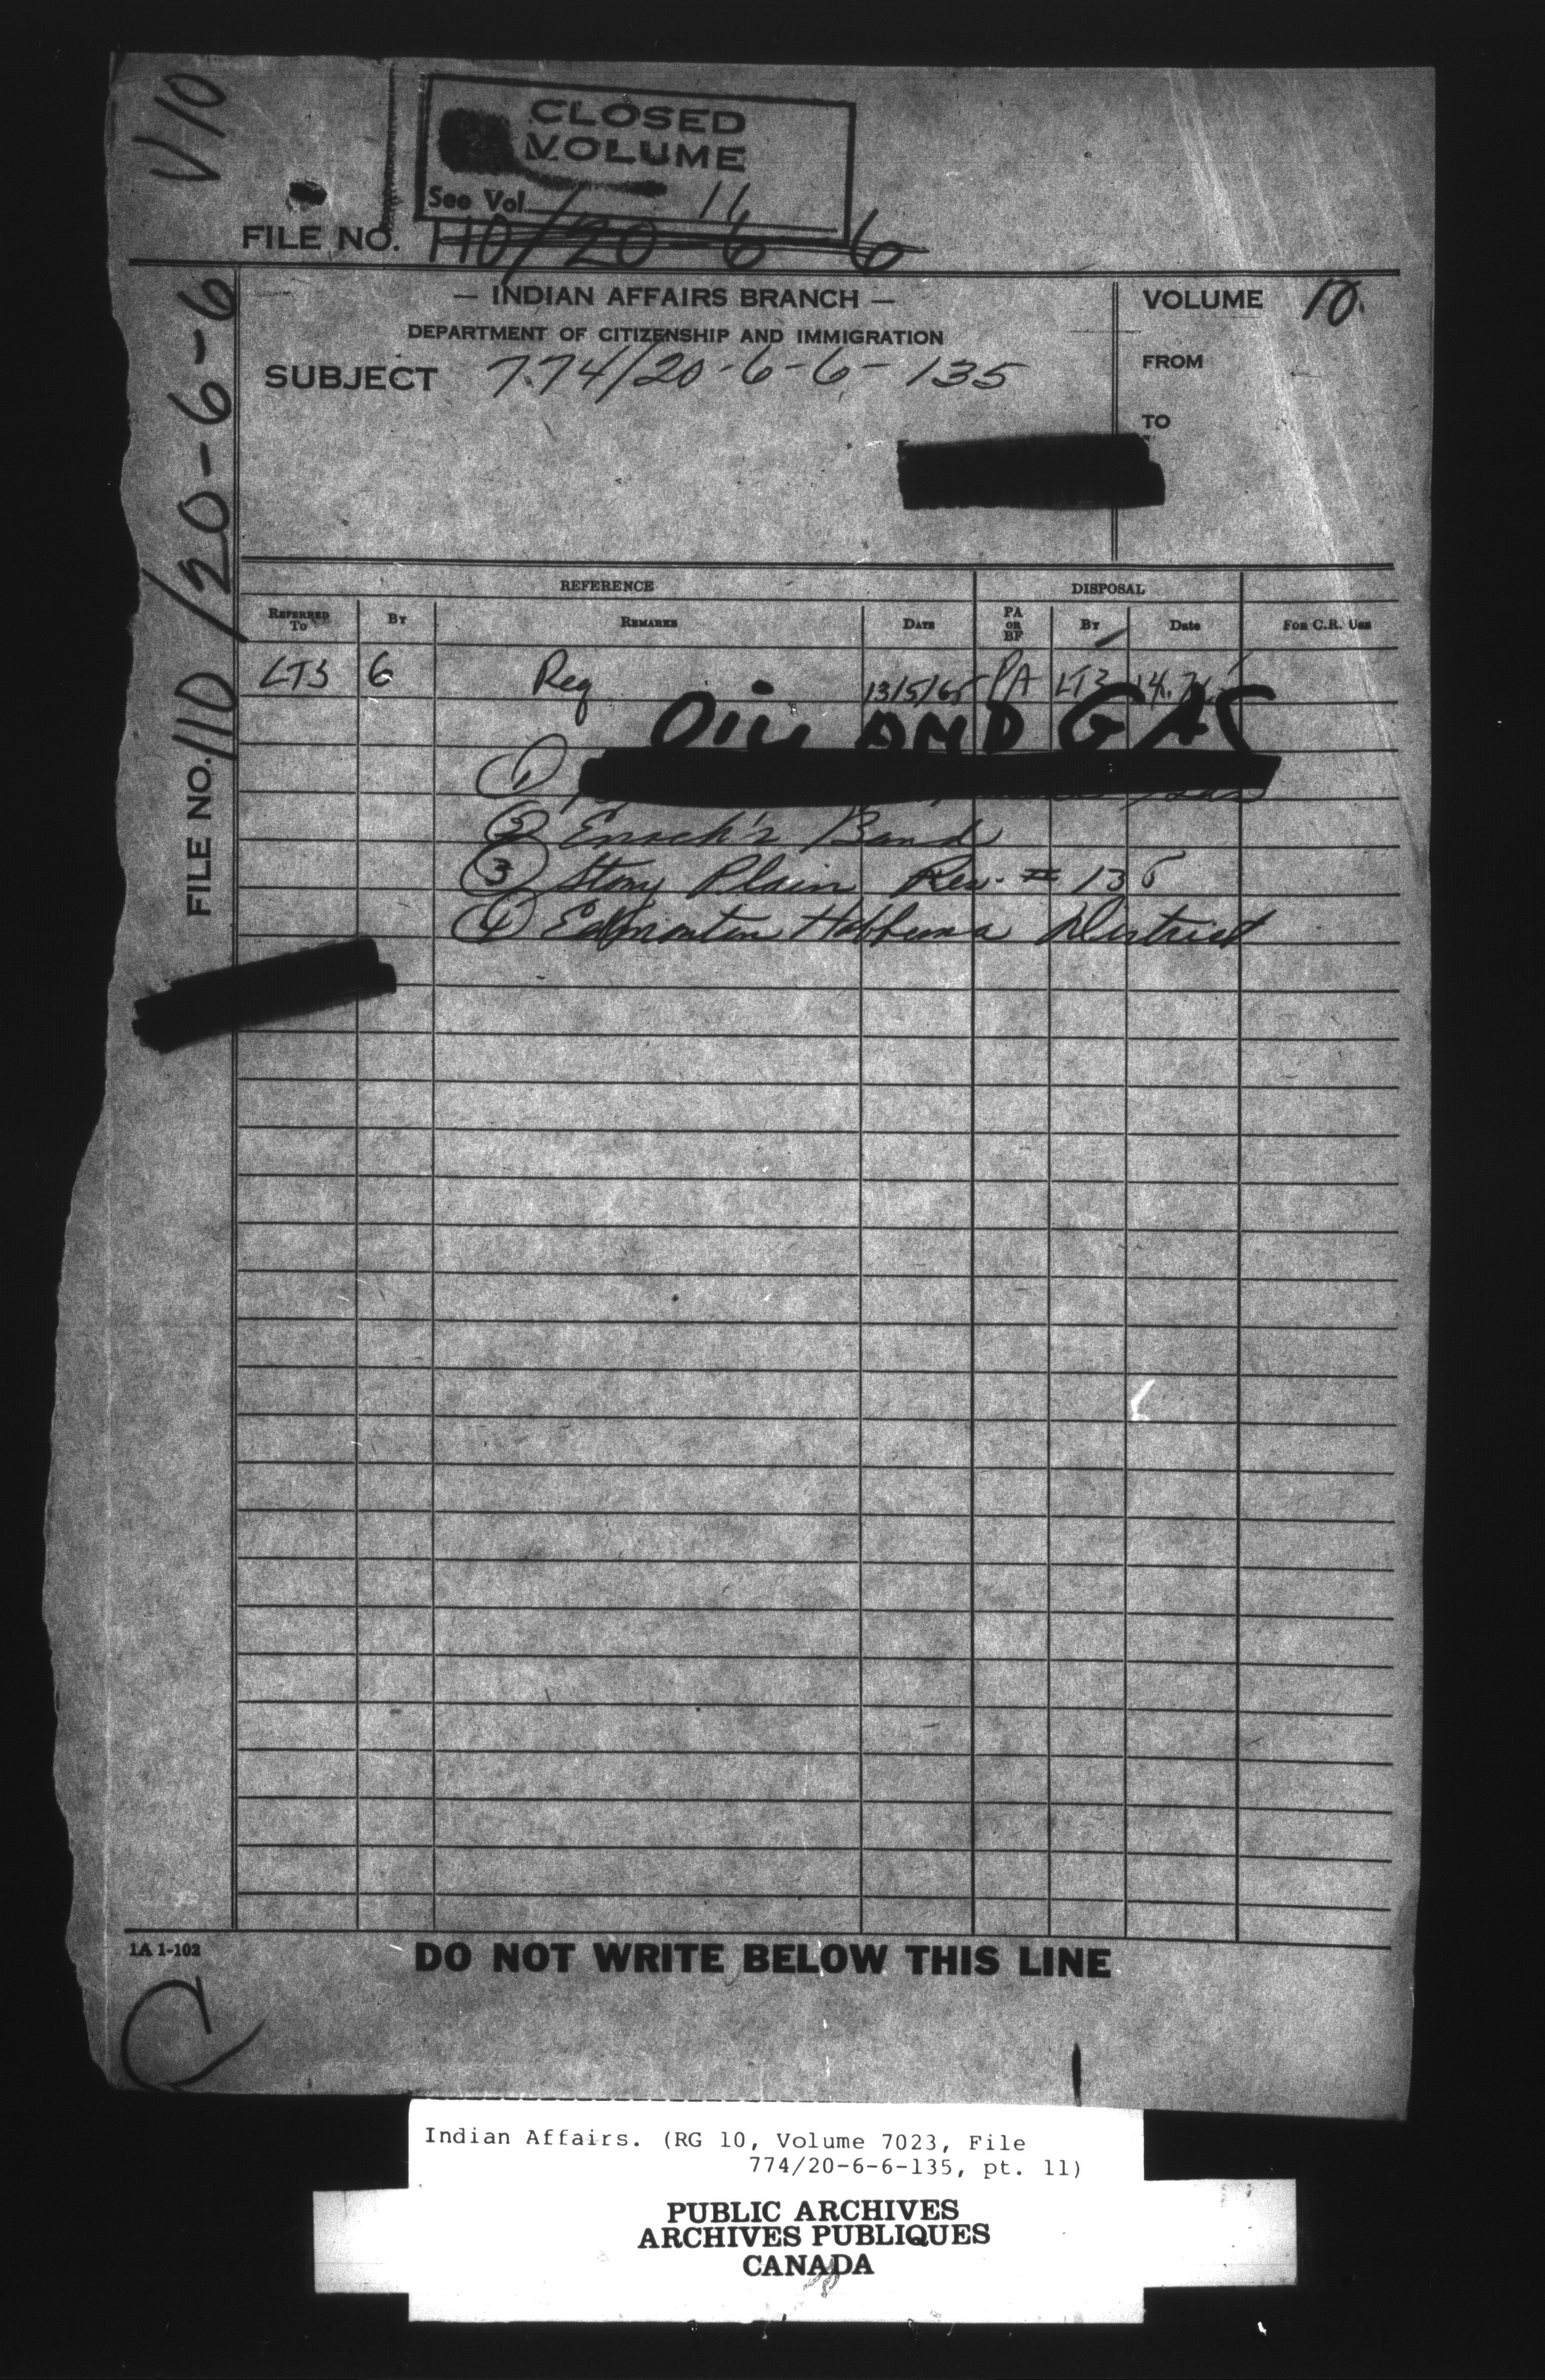 V10
CLOSED
VOLUME
See Vol. 11
FILE NO. 110/20-6-6
— INDIAN AFFAIRS BRANCH —
DEPARTMENT OF CITIZENSHIP AND IMMIGRATION
SUBJECT 774/20-6-6-135
VOLUME 10.
FROM
TO
FILE NO. 110/20-6-6
REFERENCE
DISPOSAL
REFERRED TO
BY
REMARKS
DATE
PA OR BF
BY
Date
FOR C.R. USE
LT3 6 Req 13/5/65 PA LT3
OIL AND GAS
①
② Enoch's Band
③ Stony Plain Res. # 135
④ Edmonton Hobbema District
1A 1-102
DO NOT WRITE BELOW THIS LINE
Indian Affairs. (RG 10, Volume 7023, File
774/20-6-6-135, pt. 11)
PUBLIC ARCHIVES
ARCHIVES PUBLIQUES
CANADA